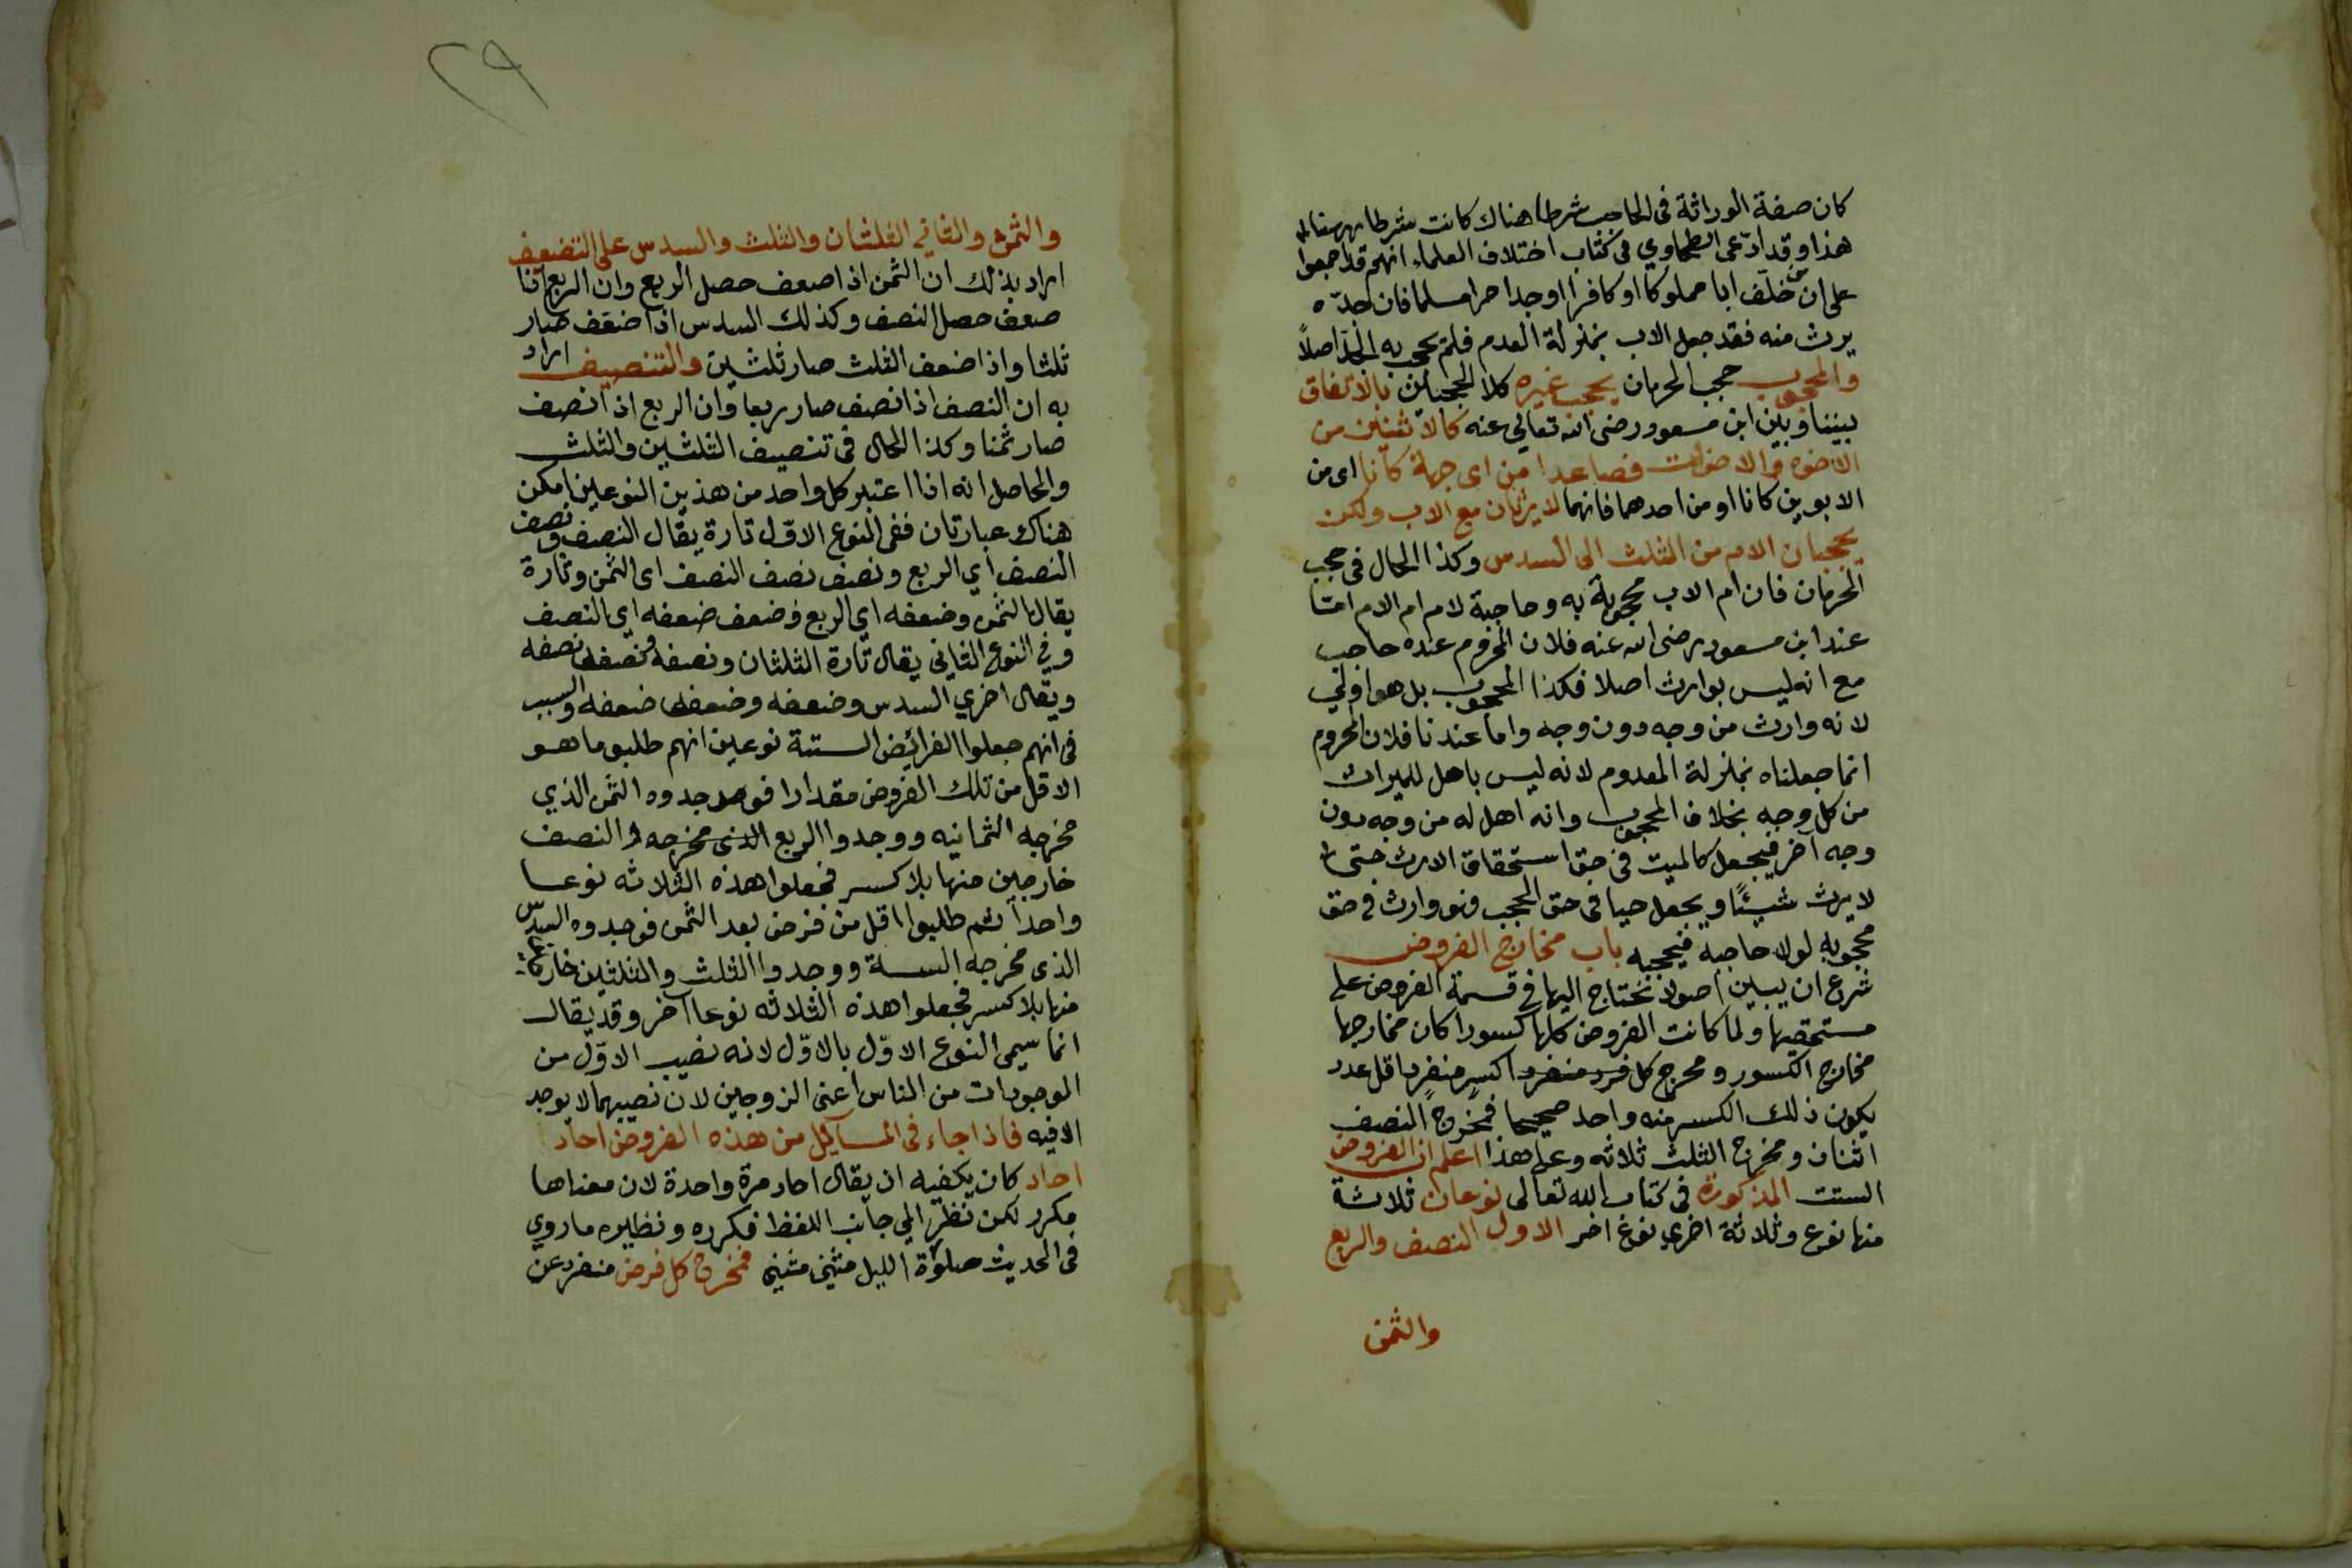 كان صفة الوراثة فى الحاجب شرطا هناك كانت شرطا ههنا
هذا وقد ادّعى الطحاوي فى كتاب اختلاف العلماء انهم قد اجمعوا
على ان من خلّف ابا مملوكا او كافرا او جدا حرا مسلما فان جدّه
يرث منه فقد جعل الاب بمنزلة العدم فلم يحجب به الجدّ اصلاً
والمحجوب حجب الحرمان يحجب غيره كلا الحجبين بالاتفاق
بيننا وبين ابن مسعود رضى الله تعالى عنه كالاثنين من
الاخوه والاخوات فصاعدا من اى جهة كانا اى من
الابوين كانا او من احدهما فانهما لا يرثان مع الاب ولكن
يحجبان الام من الثلث الى السدس وكذا الحال فى حجب
الحرمان فان ام الاب محجوبة به وحاجبة لام ام الام امّا
عند ابن مسعود رضى الله عنه فلان المحروم عنده حاجب
مع انه ليس بوارث اصلا فكذا المحجوب بل هو اولي
لانه وارث من وجه دون وجه واما عندنا فلان المحروم
انما جعلناه بمنزلة المعدوم لانه ليس باهل للميراث
من كل وجه بخلاف المحجوب وانه اهل له من وجه دون
وجه آخر فيجعل كالميت فى حق استحقاق الارث حتى
لا يرث شيئًا ويجعل حيا فى حق الحجب فهو وارث فى حق
محجوبه لولا حاجبه فيحجبه باب مخارج الفروض
شرع ان يبين اصولا نحتاج اليها فى قسمة الفروض على
مستحقيها ولما كانت الفروض كلها كسورا كان مخارجها
مخارج الكسور ومخرج كل فرد منفرد اكسر منفرد اقل عدد
يكون ذلك الكسر منه واحد صحيحا فمخرج النصف
اثنان ومخرج الثلث ثلاثه وعلى هذا اعلم ان الفروض
الستت المذكورة فى كتاب الله تعالى نوعان ثلاثة
منها نوع وثلاثة اخري نوع اخر الاول النصف والربع
والثمن
٢٩
والثمن والثاني الثلثان والثلث والسدس على التضعيف
اراد بذلك ان الثمن اذا اضعف حصل الربع وان الربع اذا
ضعف حصل النصف وكذلك السدس اذا ضعّف صار
ثلثا واذا ضعف الثلث صار ثلثين والتنصيف اراد
به ان النصف اذا نصف صار ربعا وان الربع اذا نصف
صار ثمنا وكذا الحال فى تنصيف الثلثين والثلث
والحاصل انه اذا اعتبر كل واحد من هذين النوعين امكن
هناك عبارتان ففى النوع الاوّل تارة يقال النصف ونصف
النصف اي الربع ونصف نصف النصف اى الثمن وتارة
يقال الثمن وضعفه اي الربع وضعف ضعفه اي النصف
وفي النوع الثاني يقال تارة الثلثان ونصفه ونصف نصفه
ويقال اخري السدس وضعفه وضعف ضعفه والسبب
فى انهم جعلوا الفرائض الستة نوعين انهم طلبو ما هو
الاقل من تلك الفروض مقدارا فوجدوه الثمن الذي
مخرجه الثمانيه ووجدوا الربع الذى مخرجه والنصف
خارجين منها بلا كسر فجعلوا هذه الثلاثه نوعا
واحداً ثم طلبوا اقل من فرض بعد الثمن فوجدوه السدس
الذى مخرجه الستة ووجدوا الثلث والثلثين خارجين
منها بلا كسر فجعلوا هذه الثلاثه نوعا آخر وقد يقال
انما سيمى النوع الاوّل بالاوّل لانه نصيب الاوّل من
الموجودات من الناس اعنى الزوجين لان نصيبهما لا يوجد
الا فيه فاذا جاء فى المسآيل من هذه الفروض احاد
احاد كان يكفيه ان يقال احاد مرة واحدة لان معناها
مكرر لكن نظر الي جانب اللفظ فكرره ونظيره ما روي
فى الحديث صلوة الليل مثني مثني فمخرج كل فرض منفرد عن